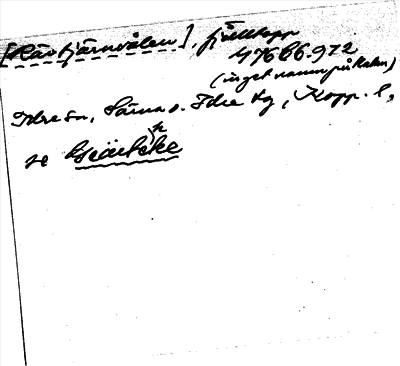 [Rävtjärnvålen], fjälltopp
476 C6.972
(inget namn på kartan)
Idre sn, Särna o. Idre tg, Kopp. l,
se